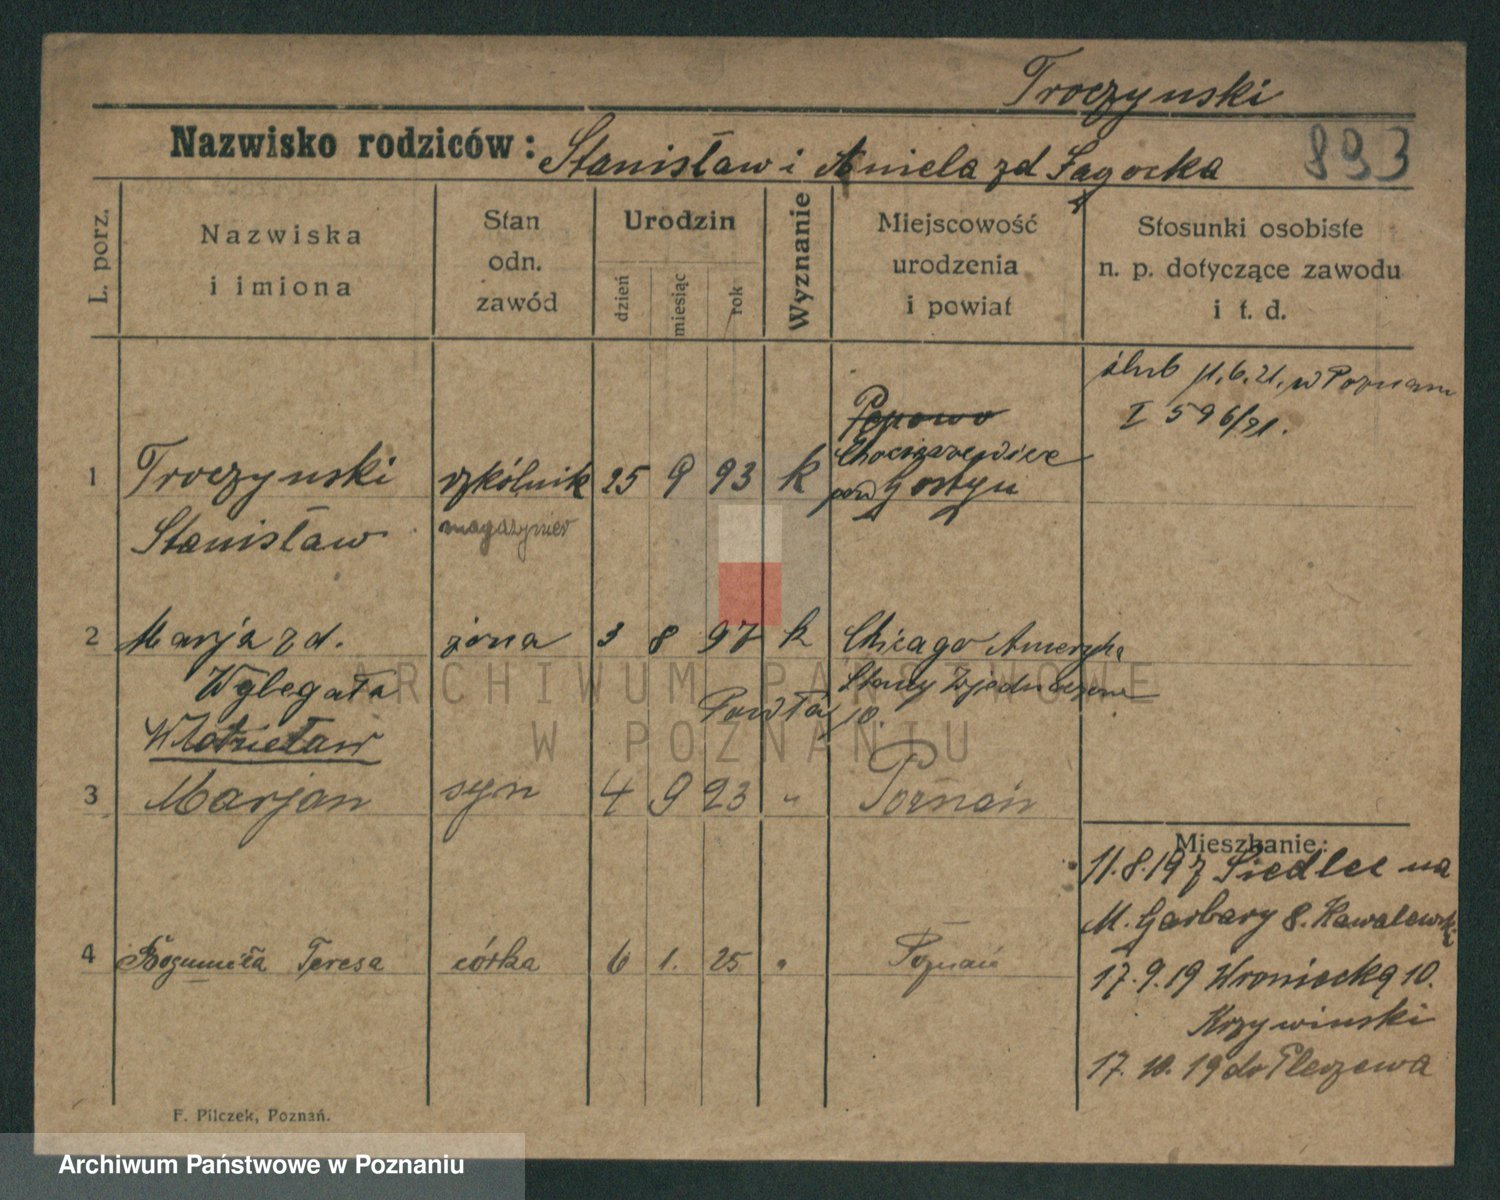 Troczynski
Nazwisko rodziców: Stanisław i Aniela zd Łagocka 893
L. porz.
Nazwiska
i imiona
Stan
odn.
zawód
Urodzin
dzień
miesiąc
rok
Wyznanie
Miejscowość
urodzenia
i powiat
Stosunki osobiste
n. p. dotyczące zawodu
i t. d.
ślub 11.6.21. w Poznaniu
I 596/21.
1 Troczynski szkólnik 25 9 93 k
Stanisław magazynier
Pępowo
Chocieszewice
pow Gostyn
2 Marja zd. żona 3 8 97 k Chicago Ameryka
Wylegała
Stany Zjednoczone
10.
3 Marjan syn 4 9 23 " Poznań
4 Bogumiła Teresa córka 6 1. 25 " Poznań
Mieszkanie:
11.8.19 z Siedlec na
M. Garbary 8. Kawalewski
17.9.19 Wroniecka 10.
Krzywinski
17.10.19 do Pleszewa
F. Pilczek, Poznań.
ARCHIWUM PAŃSTWOWE
W POZNANIU
Archiwum Państwowe w Poznaniu